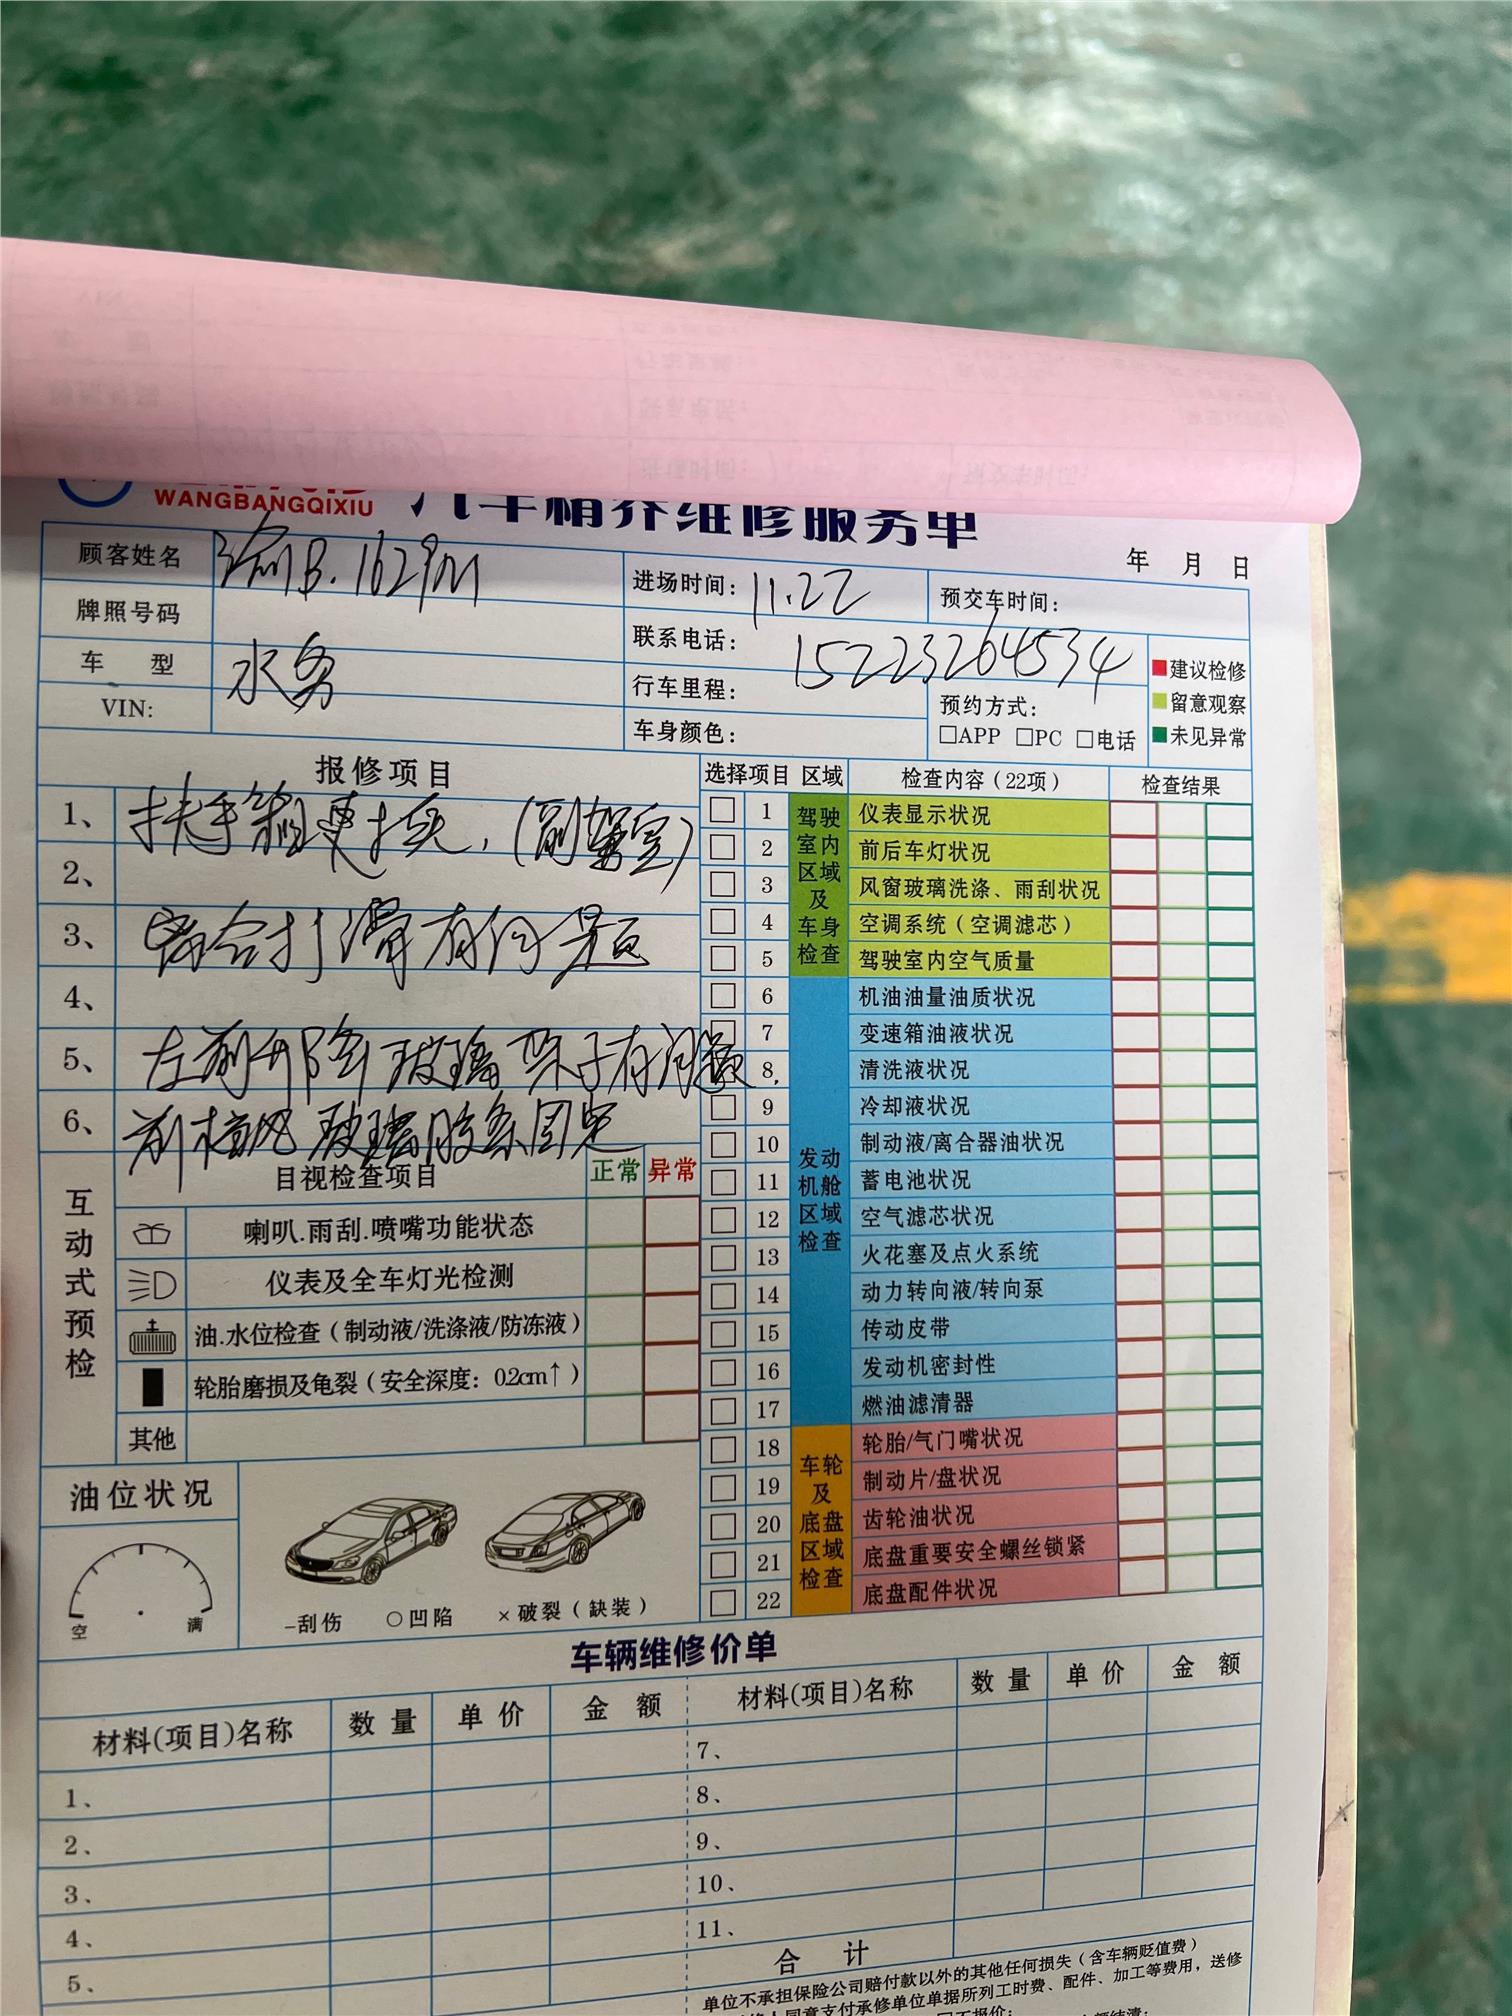 WANGBANGQIXIU 汽车精养维修服务单
年 月 日
顾客姓名 渝B.1629M
进场时间: 11.22
预交车时间:
牌照号码
联系电话: 15223264534
车 型 水务
行车里程:
预约方式:
□APP □PC □电话
VIN:
车身颜色:
建议检修
留意观察
未见异常
报修项目
1、 扶手箱更换,(副驾室)
2、
3、 离合打滑有问题
4、
5、 左前升降玻璃架子有问题
6、 前挡风玻璃胶条固定
选择项目 区域 检查内容(22项) 检查结果
驾驶室内区域及车身检查
1 仪表显示状况
2 前后车灯状况
3 风窗玻璃洗涤、雨刮状况
4 空调系统(空调滤芯)
5 驾驶室内空气质量
发动机舱区域检查
6 机油油量油质状况
7 变速箱油液状况
8 清洗液状况
9 冷却液状况
10 制动液/离合器油状况
11 蓄电池状况
12 空气滤芯状况
13 火花塞及点火系统
14 动力转向液/转向泵
15 传动皮带
16 发动机密封性
17 燃油滤清器
车轮及底盘区域检查
18 轮胎/气门嘴状况
19 制动片/盘状况
20 齿轮油状况
21 底盘重要安全螺丝锁紧
22 底盘配件状况
互动式预检
目视检查项目 正常 异常
喇叭.雨刮.喷嘴功能状态
仪表及全车灯光检测
油.水位检查(制动液/洗涤液/防冻液)
轮胎磨损及龟裂(安全深度:0.2cm↑)
其他
油位状况
空 满
-刮伤 ○凹陷 ×破裂(缺装)
车辆维修价单
材料(项目)名称 数量 单价 金额 材料(项目)名称 数量 单价 金额
1、
2、
3、
4、
5、
7、
8、
9、
10、
11、
合 计
单位不承担保险公司赔付款以外的其他任何损失(含车辆贬值费)
同意支付承修单位单据所列工时费、配件、加工等费用,送修